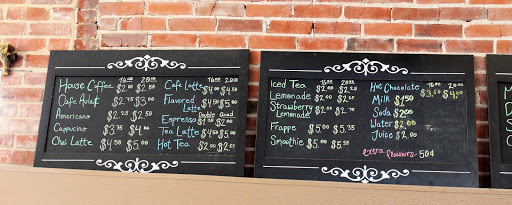 16oz 20oz
House Coffee $2.00 $2.50
Cafe Aulait $2.75 $3.00
Americano $2.25 $2.50
Cappucino $3.75 $4.00
Chai Latte $4.50 $5.00
16oz 20oz
Cafe Latte $4.00 $4.50
Flavored Latte $4.50 $5.00
Double Quad
Espresso
Tea Latte $4.50 $5.00
Hot Tea $2.00 $2.25
16oz 20oz
Iced Tea
Lemonade
Strawberry
Lemonade
Frappe $5.00 $5.75
Smoothie $5.00 $5.50
16oz 20oz
Hot Chocolate $3.50 $4.00
Milk $1.50
Soda $2.00
Water $2.00
Juice $2.00
extra flavours - 50¢